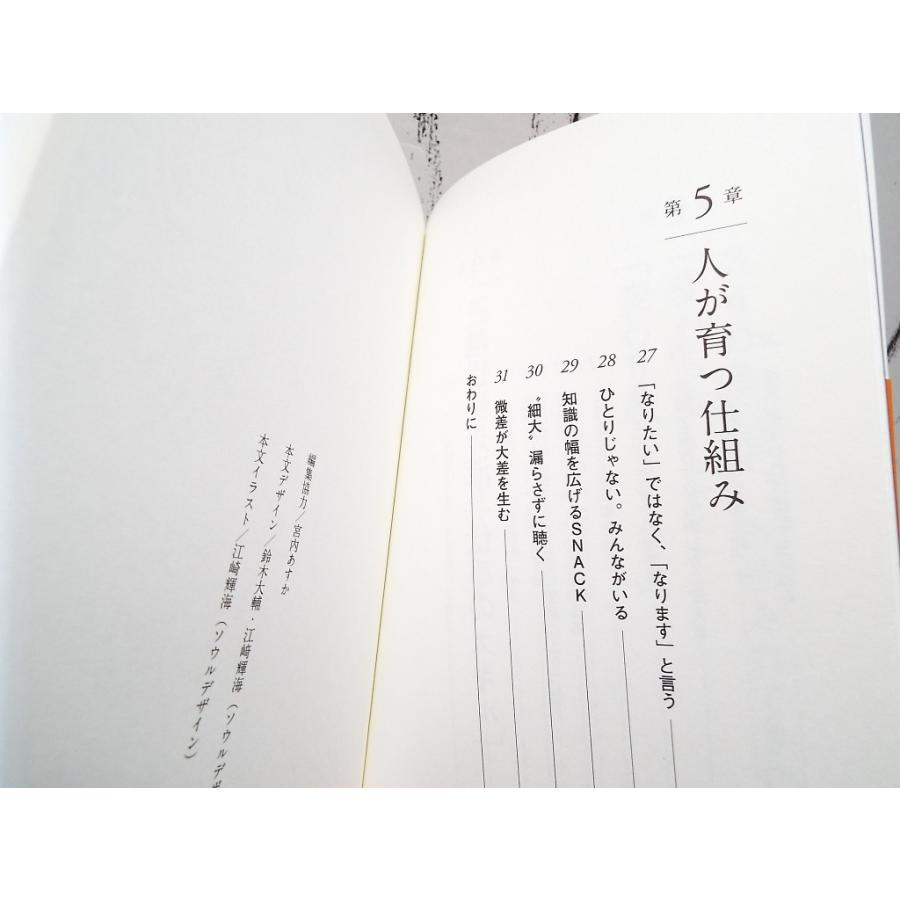 第5章
人が育つ仕組み
27 「なりたい」ではなく、「なります」と言う
28 ひとりじゃない。みんながいる
29 知識の幅を広げるSNACK
30 〝細大〟漏らさずに聴く
31 微差が大差を生む
おわりに
編集協力／宮内あすか
本文デザイン／鈴木大輔・江﨑輝海（ソウルデザ
本文イラスト／江﨑輝海（ソウルデザイン）